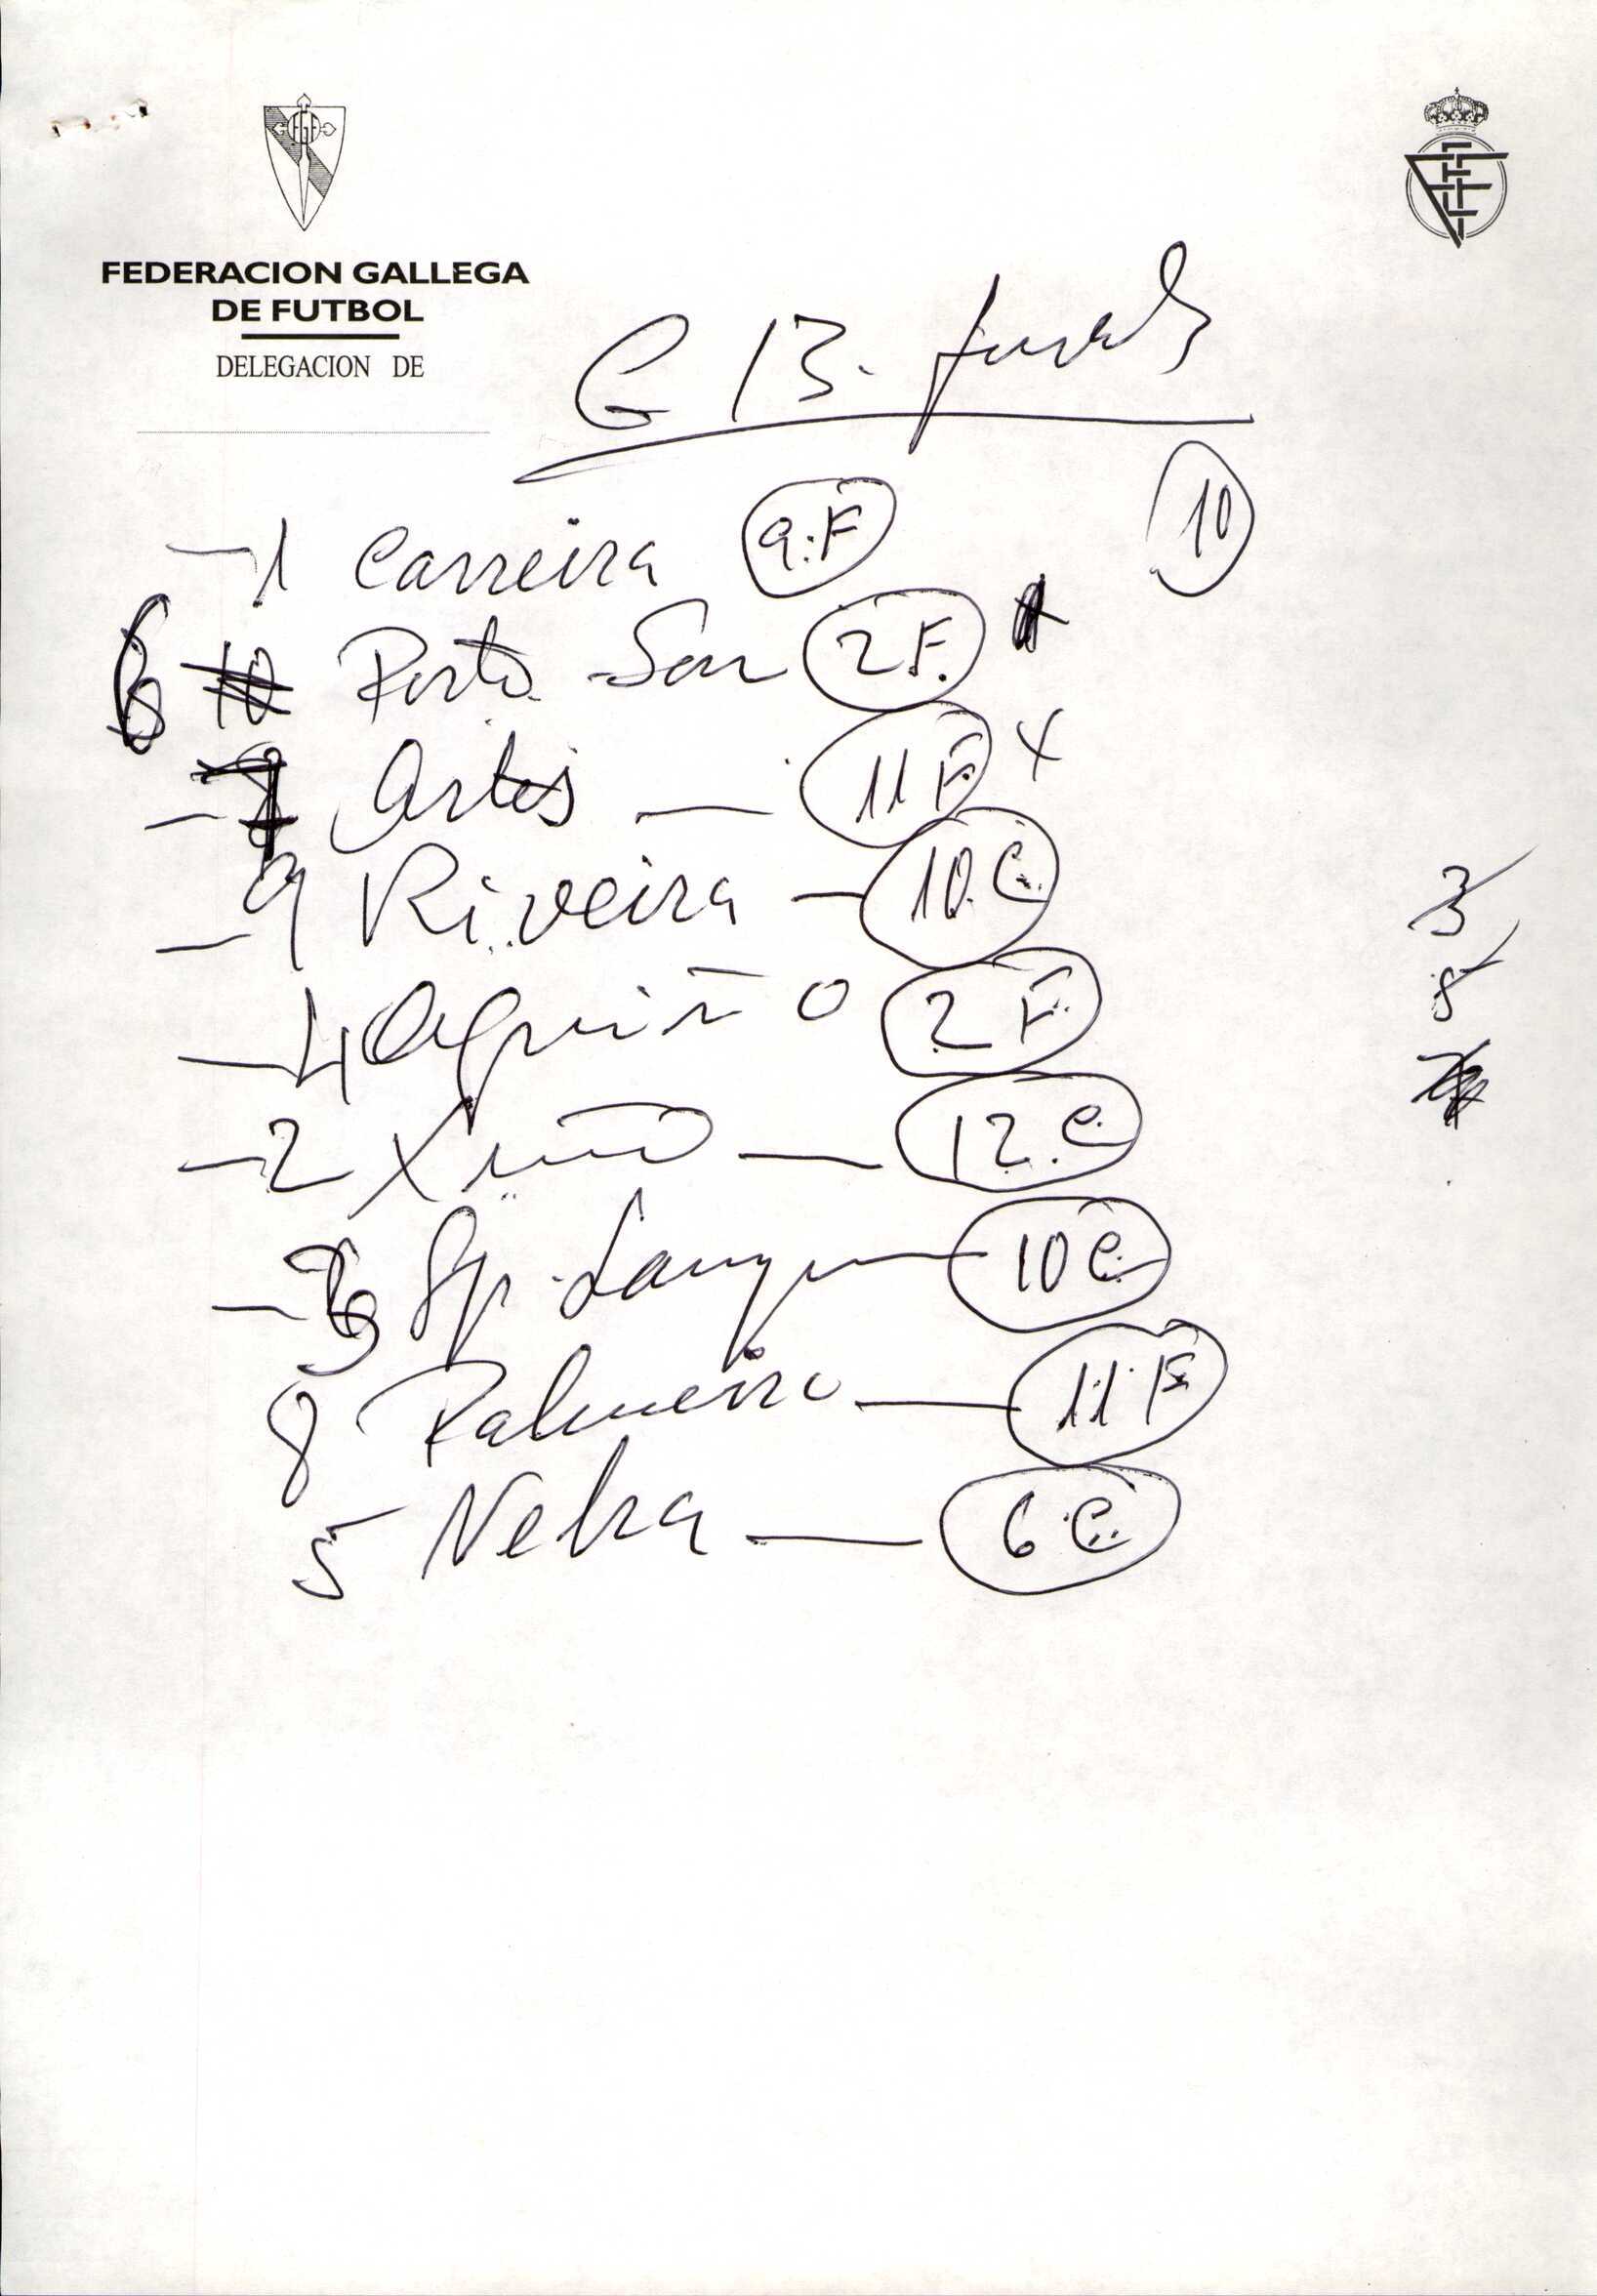 FGF
FEDERACION GALLEGA
DE FUTBOL
DELEGACION DE
G 13.
10
1 Carreira 9.F
6 10 Porto Son 2F.
Artes 11 F X
9 Riveira 10.C.
4 Aguiño 2 F.
2 Xuño 12.C
Sp. Lampon 10 C.
8 Palmeira 11 F
5 Nebra 6 C.
3
8